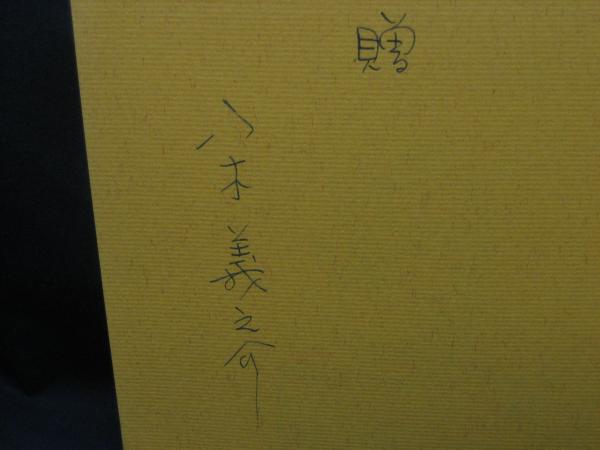 贈
八木義之介